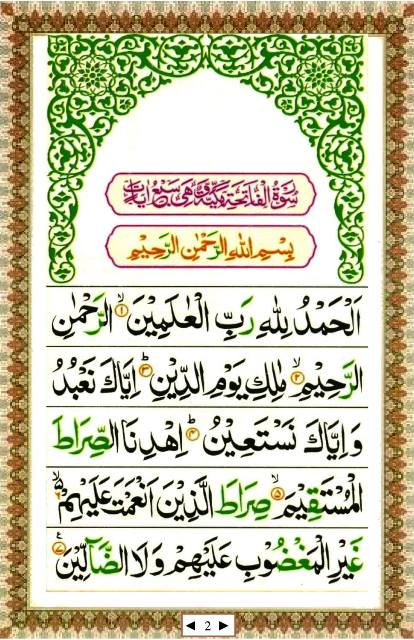 سُوْرَةُ الْفَاتِحَةِ مَكِّيَّةٌ وَّهِيَ سَبْعُ اٰيَاتٍ
بِسْمِ اللهِ الرَّحْمٰنِ الرَّحِيْمِ
اَلْحَمْدُ لِلّٰهِ رَبِّ الْعٰلَمِيْنَ ۙ﴿۱﴾ الرَّحْمٰنِ
الرَّحِيْمِ ۙ﴿۲﴾ مٰلِكِ يَوْمِ الدِّيْنِ ؕ﴿۳﴾ اِيَّاكَ نَعْبُدُ
وَ اِيَّاكَ نَسْتَعِيْنُ ؕ﴿۴﴾ اِهْدِنَا الصِّرَاطَ
الْمُسْتَقِيْمَ ۙ﴿۵﴾ صِرَاطَ الَّذِيْنَ اَنْعَمْتَ عَلَيْهِمْ ۙ﴿۶﴾
غَيْرِ الْمَغْضُوْبِ عَلَيْهِمْ وَلَا الضَّآلِّيْنَ ﴿۷﴾
◄ 2 ►